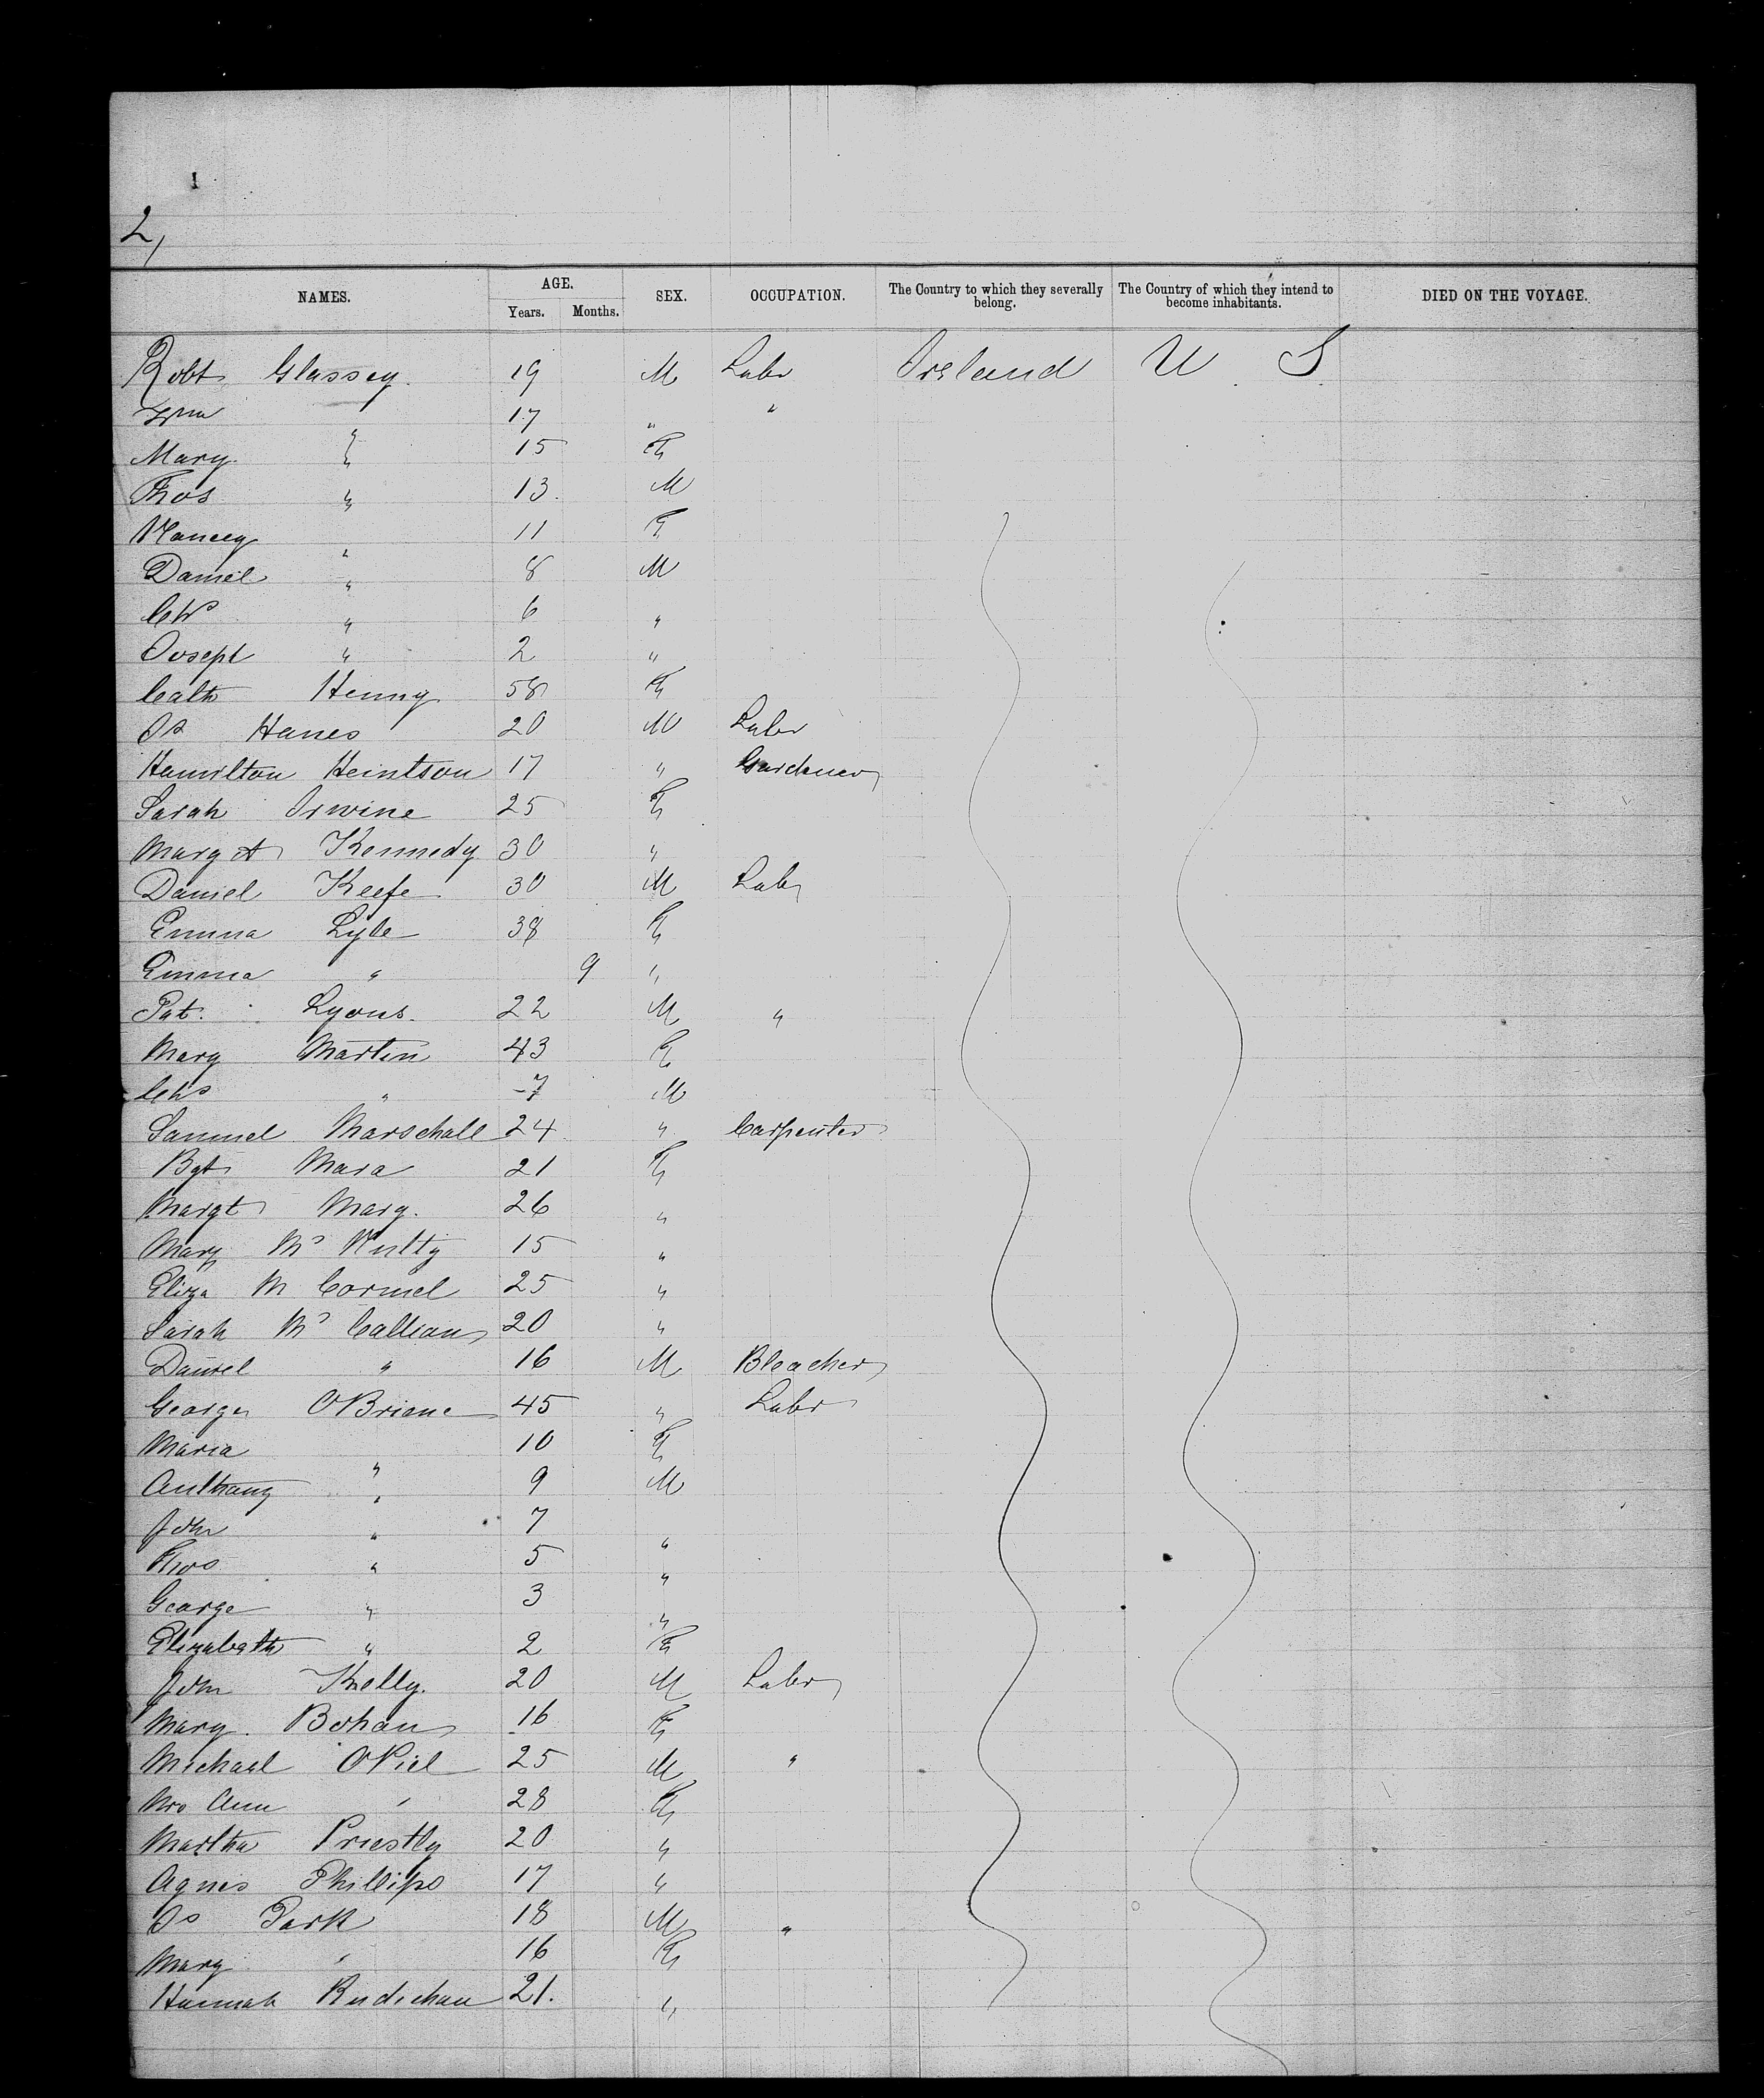 2,
NAMES. AGE. SEX. OCCUPATION. The Country to which they severally belong. The Country of which they intend to become inhabitants. DIED ON THE VOYAGE.
Years. Months.
Robt Glassey. 19 M Labr Ireland U. S.
Wm " 17 " "
Mary " 15 F
Thos " 13. M
Nancy " 11 F
Daniel " 8 M
Chs " 6 "
Joseph " 2 "
Cath Henny 58 F
Js Hanes 20 M Labr
Hamilton Heintson 17 " Gardener
Sarah Irwine 25 F
Margt Kennedy 30 "
Daniel Keefe 30 M Labr
Emma Lyle 38 F
Emma " 9 "
Pat. Lyons. 22 M "
Mary Martin 43 F
Chs " 7 M
Samuel Marschall 24 " Carpenter
Bgt Mara 21 F
Margt Mary. 26 "
Mary Mc Nulty 15 "
Eliza M Cormel 25 "
Sarah Mc Callean 20 "
Daniel " 16 M Bleacher
George OBriane 45 " Labr
Maria " 10 F
Anthany " 9 M
John " 7 "
Thos " 5 "
George " 3 "
Elizabeth " 2 F
John Kelly. 20 M Labr
Mary. Bohan 16 F
Michael ONiel 25 M "
Mrs Ann " 28 F
Martha Priestly 20 "
Agnes Phillips 17 "
Js Park 18 M "
Mary " 16 F
Hannah 21. "